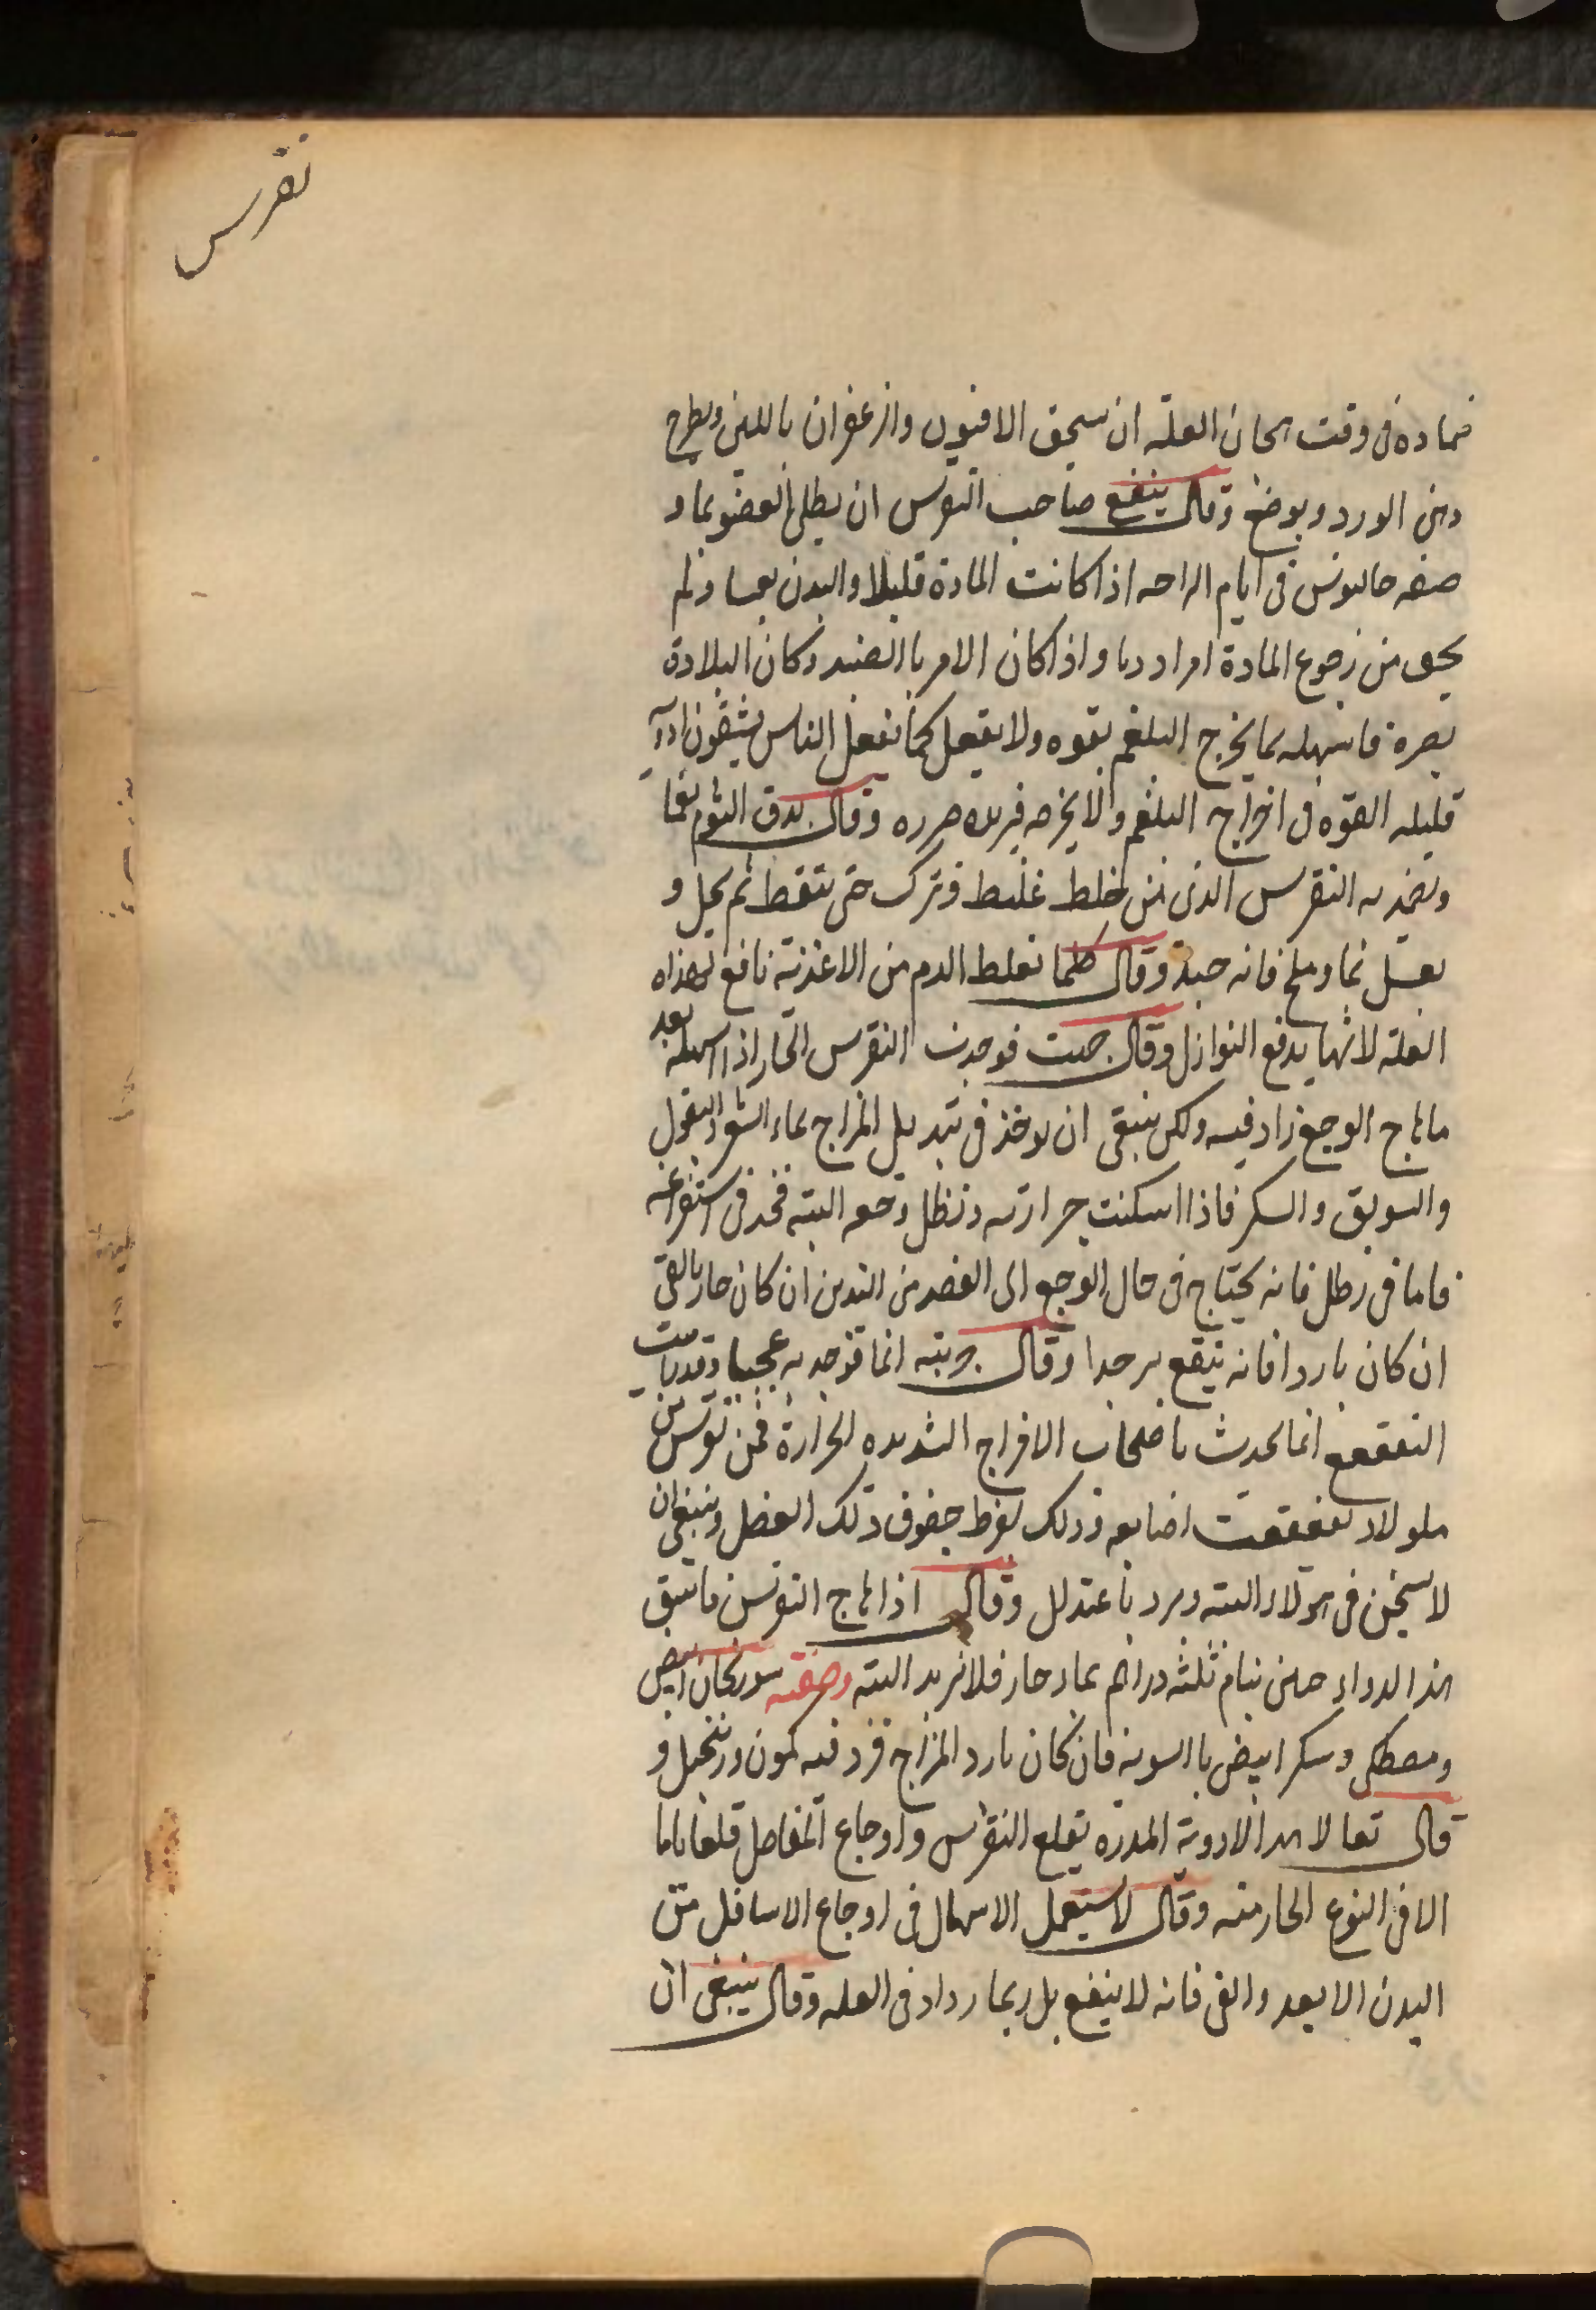 نقرس
ضماده فى وقت هيجان العلة ان يسحق الافيون والزعفران باللبن ويطرح
دهن الورد ويوضع وقال ينفع صاحب النقرس ان يطلى العضو بماء
صفه جالينوس فى ايام الراحه اذا كانت المادة قليلا والبدن نقيا ولم
يخف من رجوع المادة امرا رديا واذا كان الامر باالضد وكان البلادة
بصرة فاسهله بما يخرج البلغم بقوه ولا يفعل كما يفعل الناس يسقون ادوية
قليله القوه فى اخراج البلغم والا يخرجه فيزيده ضرره وقال يدق الثوم نعما
ويضمد به النقرس الذى من خلط غليظ وترك حتى يتنفط ثم يحل و
يغسل بماء وملح فانه جيد وقال كلما تغلظ الدم من الاغذية نافع لهذه
العلة لانها يدفع النوازل وقال جربت فوجدت النقرس الحار اذا اسهله بعد
ما هاج الوجع زاد فيه ولكن ينبغى ان يوخذ فى تبديل المزاج بماء الشعير والبقول
والسويق والسكر فاذا اسكنت حرارته وتطل وجعه البته فخذ فى استفراغه
فاما فى رطل فانه يحتاج فى حال الوجع الى الفصد من اليدين ان كان حار بالقئ
ان كان باردا فانه ينفع به جدا وقال جربته انما فوجد به عجيبا وقد رايت
التفقع انما يحدث باصحاب الافراج الشديده الحرارة فمن نقرس من
هولاء تفقعت اصابعه وذلك لفرط جفوف ذلك الفضل وينبغى ان
لا يسخن فى هولاء البته ويبرد باعتدال وقال اذا هاج النقرس فاسق
هذا الدواء حين ينام ثلثه دراهم بماء حار فلا يزيد البته وصفته سورنجان ابيض
ومصطكى وسكر ابيض باالسوية فان كان بارد المزاج فزد فيه كمون وزنجبيل و
قال تعا لا هذا الادوية المدره يقلع النقرس واوجاع المفاصل قلعا تاما
الا فى النوع الحار منه وقال لا يستعمل الاسهال فى اوجاع الاسافل من
البدن الا بعد والقى فانه لا ينفع بل ربما زاد فى العله وقال ينبغى ان